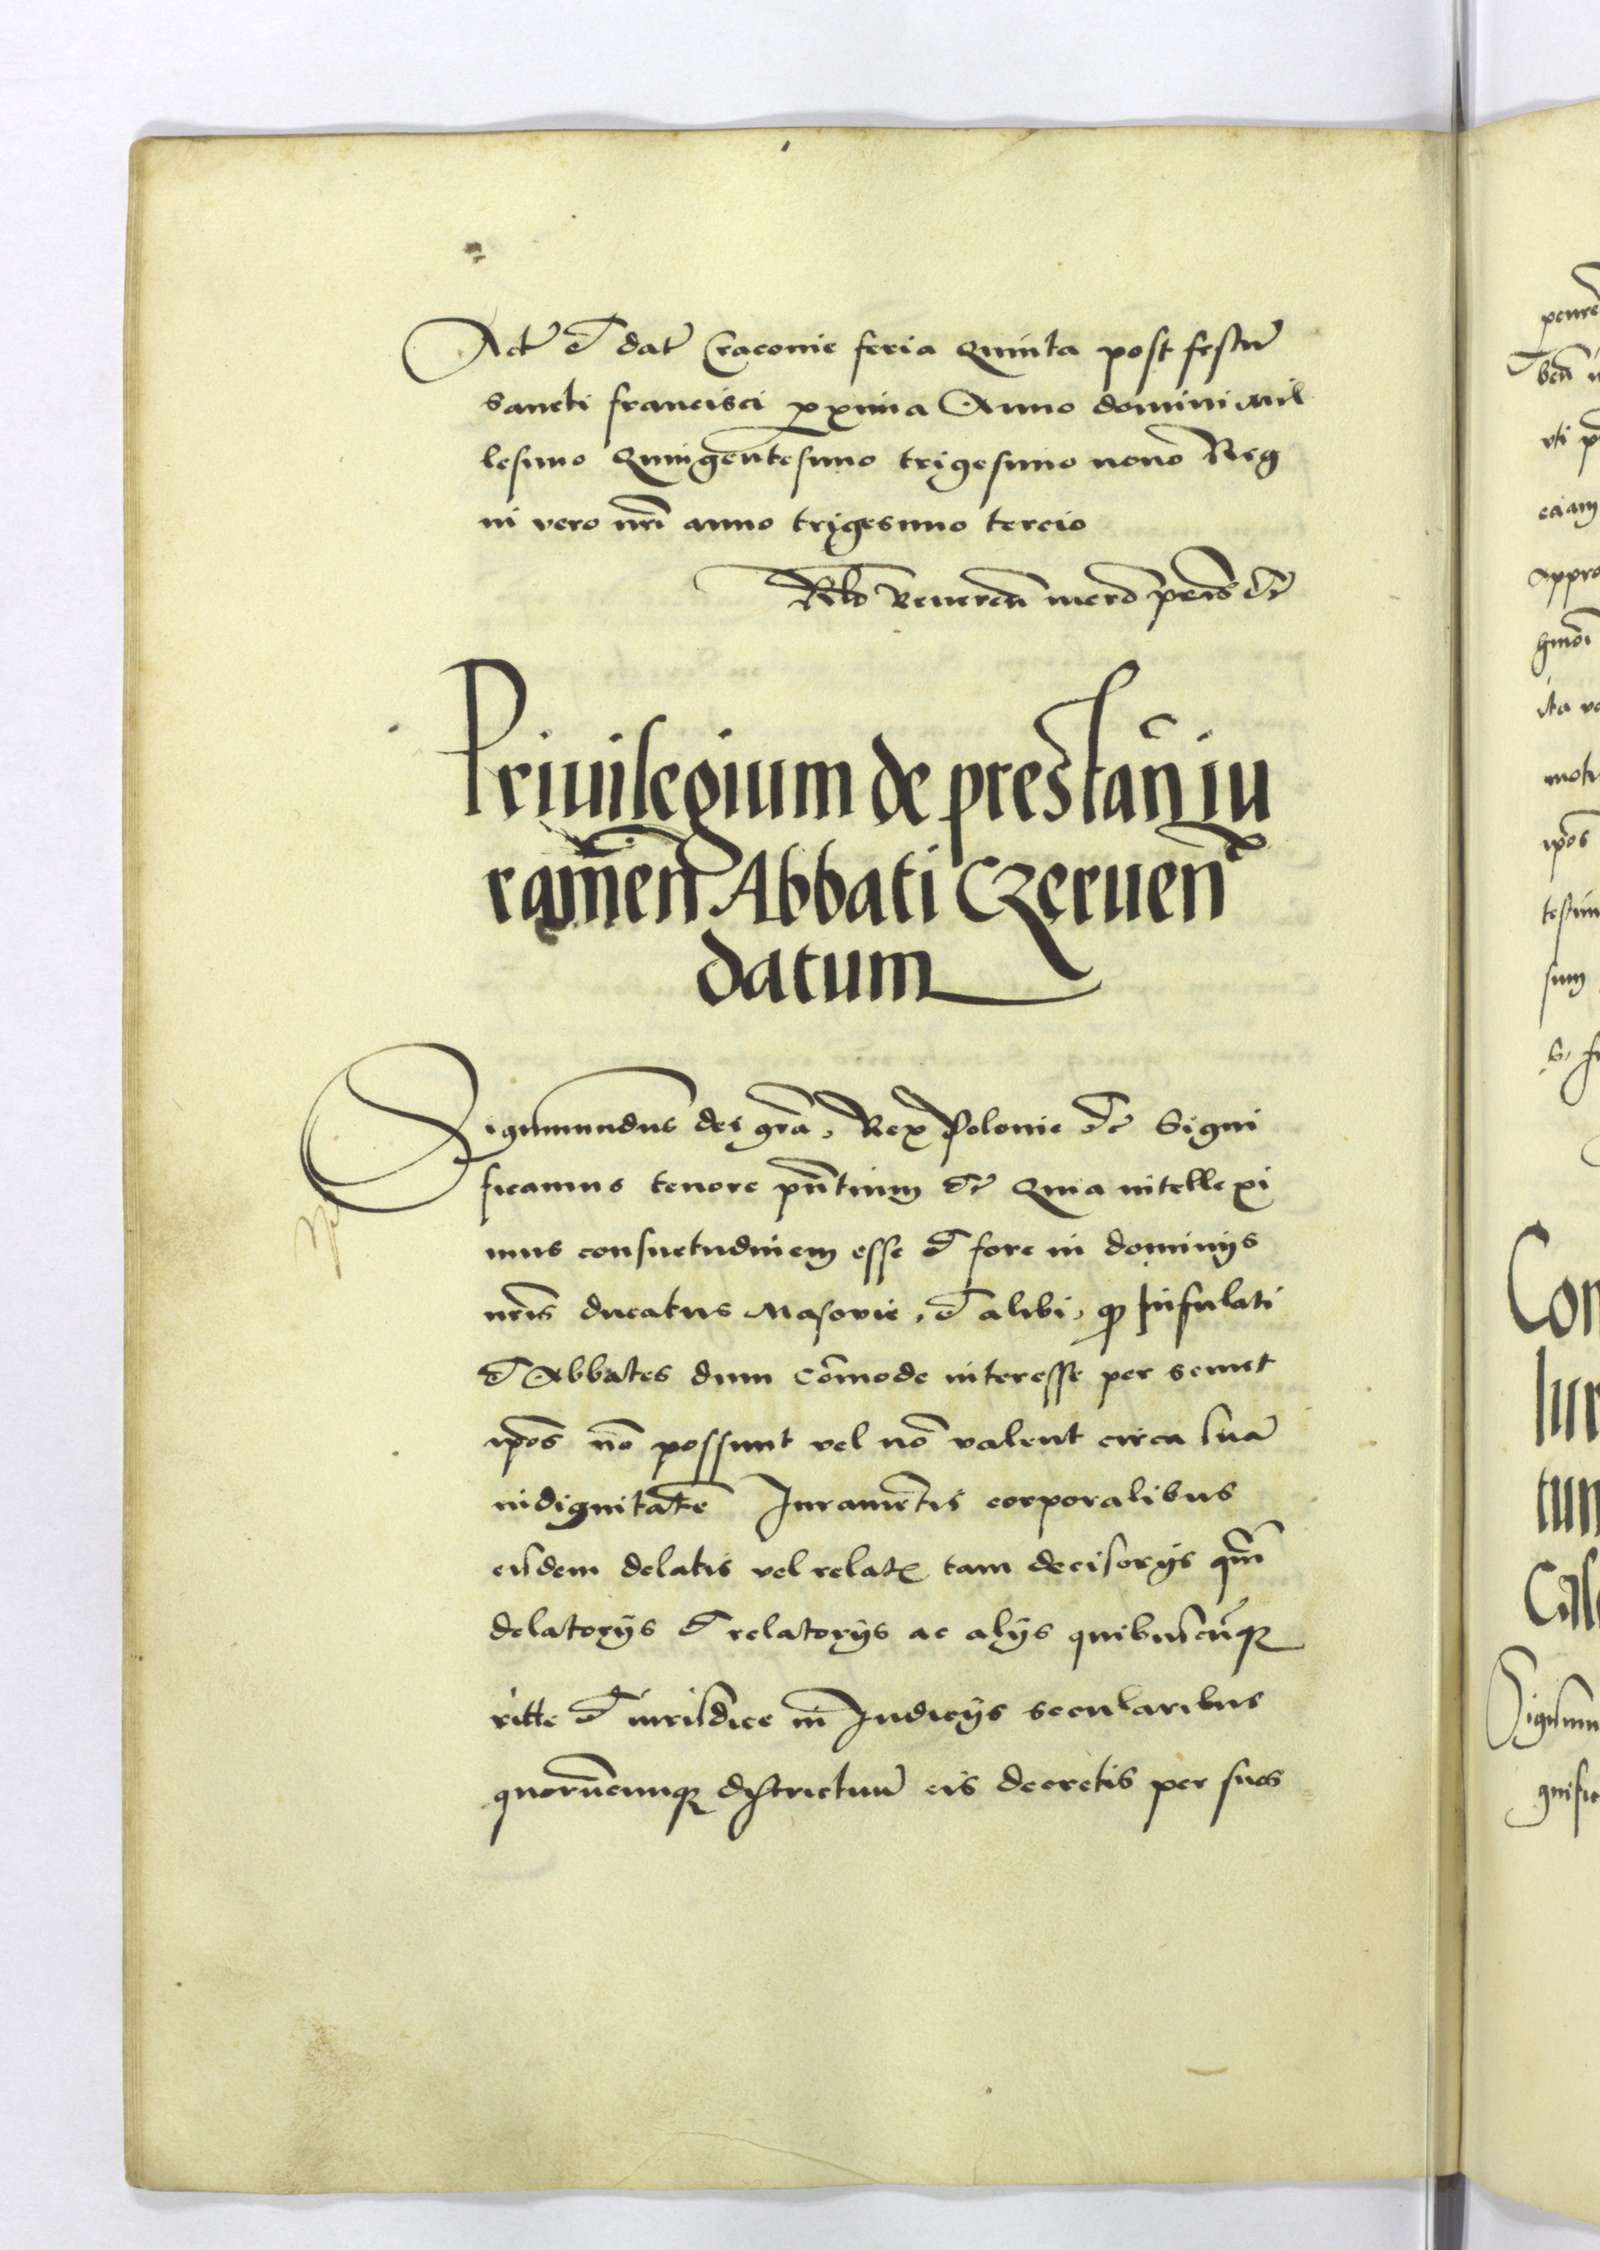 Act̄ et dat̄ Cracovie feria Quinta post festū
sancti francisci p̱xima Anno domini Mil
lesimo Quingentesimo trigesimo nono Reg
ni vero nr̄i anno trigesimo tercio
Rlō Reveren̄ in cr̄o pr̄is etc̄
Privilegium de prestan̄ iu
ramen̄ Abbati Czerven̄
datum
Sigismundus dei gr̄a, Rex Polonie etc̄ Signi
ficamus tenore pn̄tium etc̄ Quia intellexi
mus consuetudinem esse et fore in dominijs
nr̄is ducatus Masovie, et alibi, qꝫ Infulati
et Abbates dum com̄ode interesse per semet
ip̄os nō possunt vel nō valent circa suā
indignitatē Iuramentis corporalibus
eisdem delatis vel relatꝭ tam decisorijs qm̄
delatorijs et relatorijs ac alijs quibuscūqꝫ
ritte et iuridice in Iudicijs secularibus
quorūcunqꝫ districtuū eis decretis per suos
Con
iur
tun